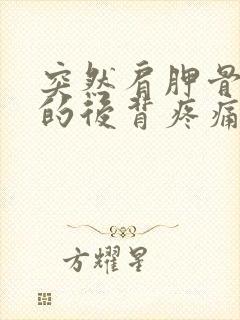 突然肩胛骨
的后背疼痛
方耀星